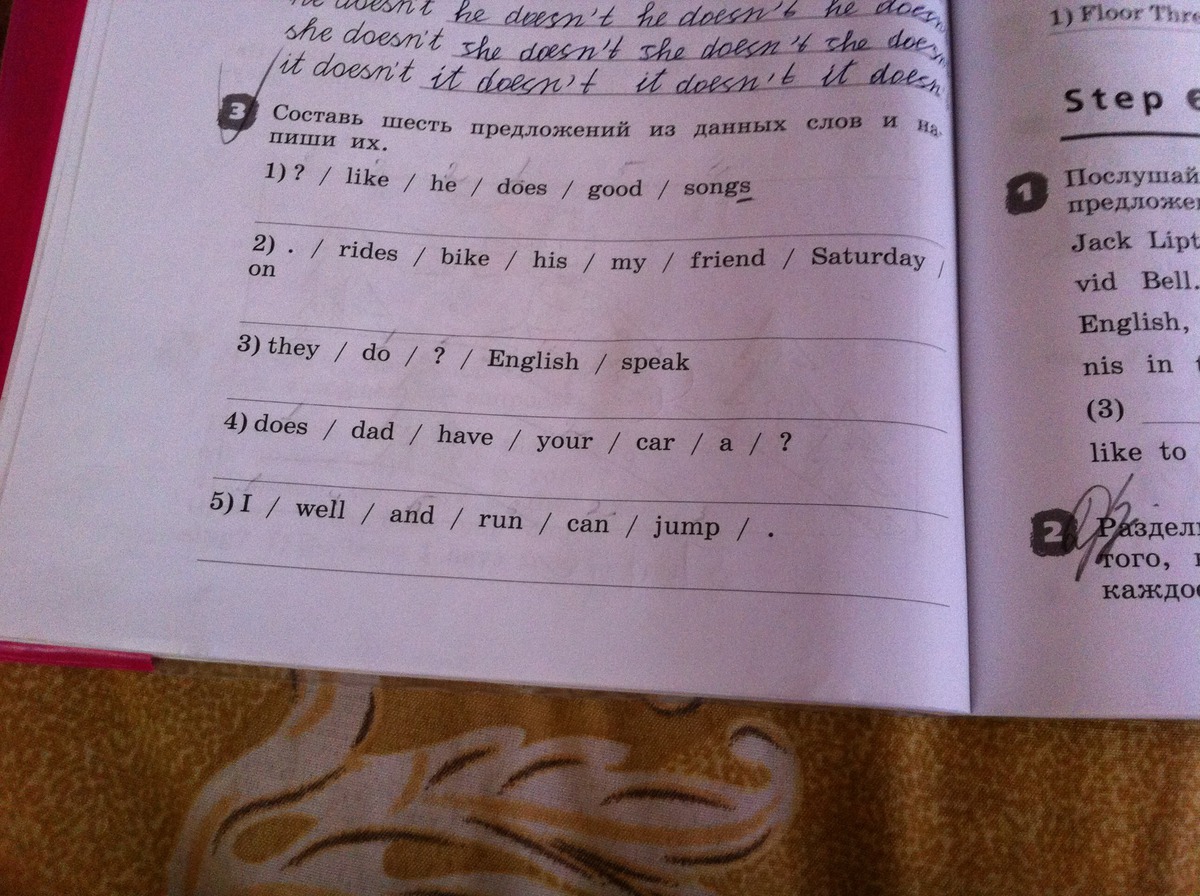 he doesn't he doesn't he doesn't he doesn
she doesn't she doesn't she doesn't she doesn
it doesn't it doesn't it doesn't it doesn
3 Составь шесть предложений из данных слов и на-
пиши их.
1) ? / like / he / does / good / songs
2) . / rides / bike / his / my / friend / Saturday /
on
3) they / do / ? / English / speak
4) does / dad / have / your / car / a / ?
5) I / well / and / run / can / jump / .
1) Floor
Step
1 Послушай
Jack
vid Bell.
English,
nis in
(3)
like to
2
того,